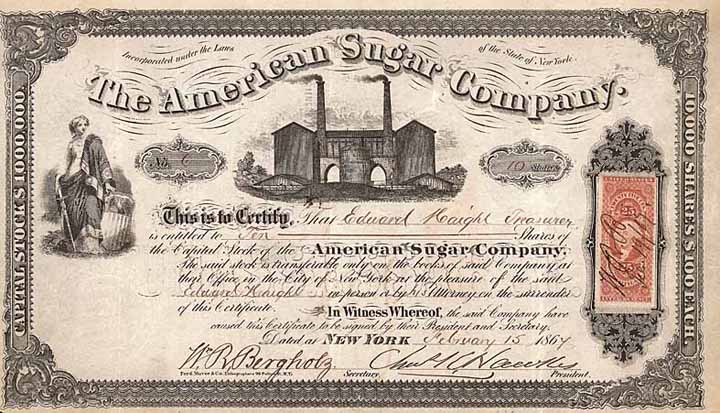 Incorporated under the Laws of the State of New York.
The American Sugar Company.
CAPITAL STOCK $1,000,000.
10,000 SHARES $100 EACH.
No. 6
10 Shares
This is to Certify, That Edward Haight Treasurer
is entitled to Ten Shares of
the Capital Stock of the American Sugar Company.
The said stock is transferable only on the books of said Company at
their Office in the City of New York at the pleasure of the said
Edward Haight in person or by Attorney, on the surrender
of this Certificate. In Witness Whereof, the said Company have
caused this Certificate to be signed by their President and Secretary.
Dated at NEW YORK February 15 1867
W. R. Bergholz
Secretary.
President.
25